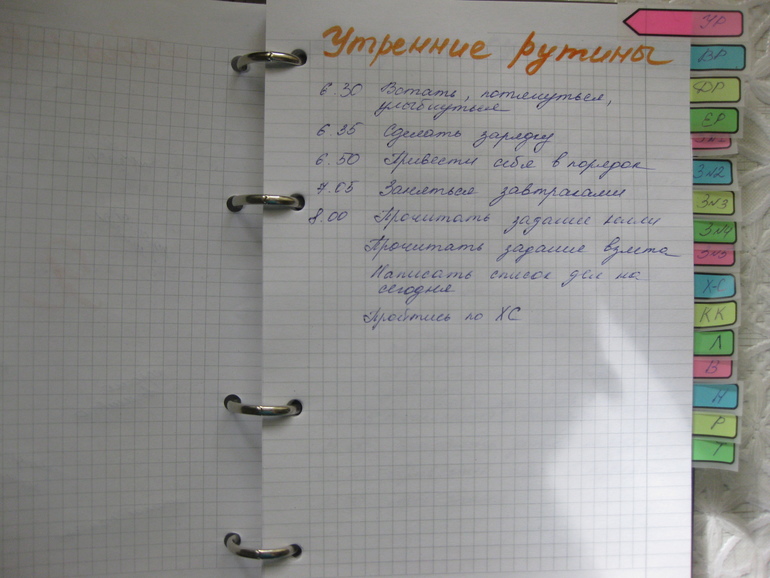 Утренние рутины
6.30 Встать, потянуться,
улыбнуться
6.35 Сделать зарядку
6.50 Привести себя в порядок
7.05 Заняться завтраками
8.00 Прочитать задание нелли
Прочитать задание взлета
Написать список дел на
сегодня
Пройтись по ХС
УР
ВР
ДР
ЕР
ЗЛ2
ЗЛ3
ЗЛ4
ЗЛ5
Х-С
КК
Л
В
Н
Р
Т